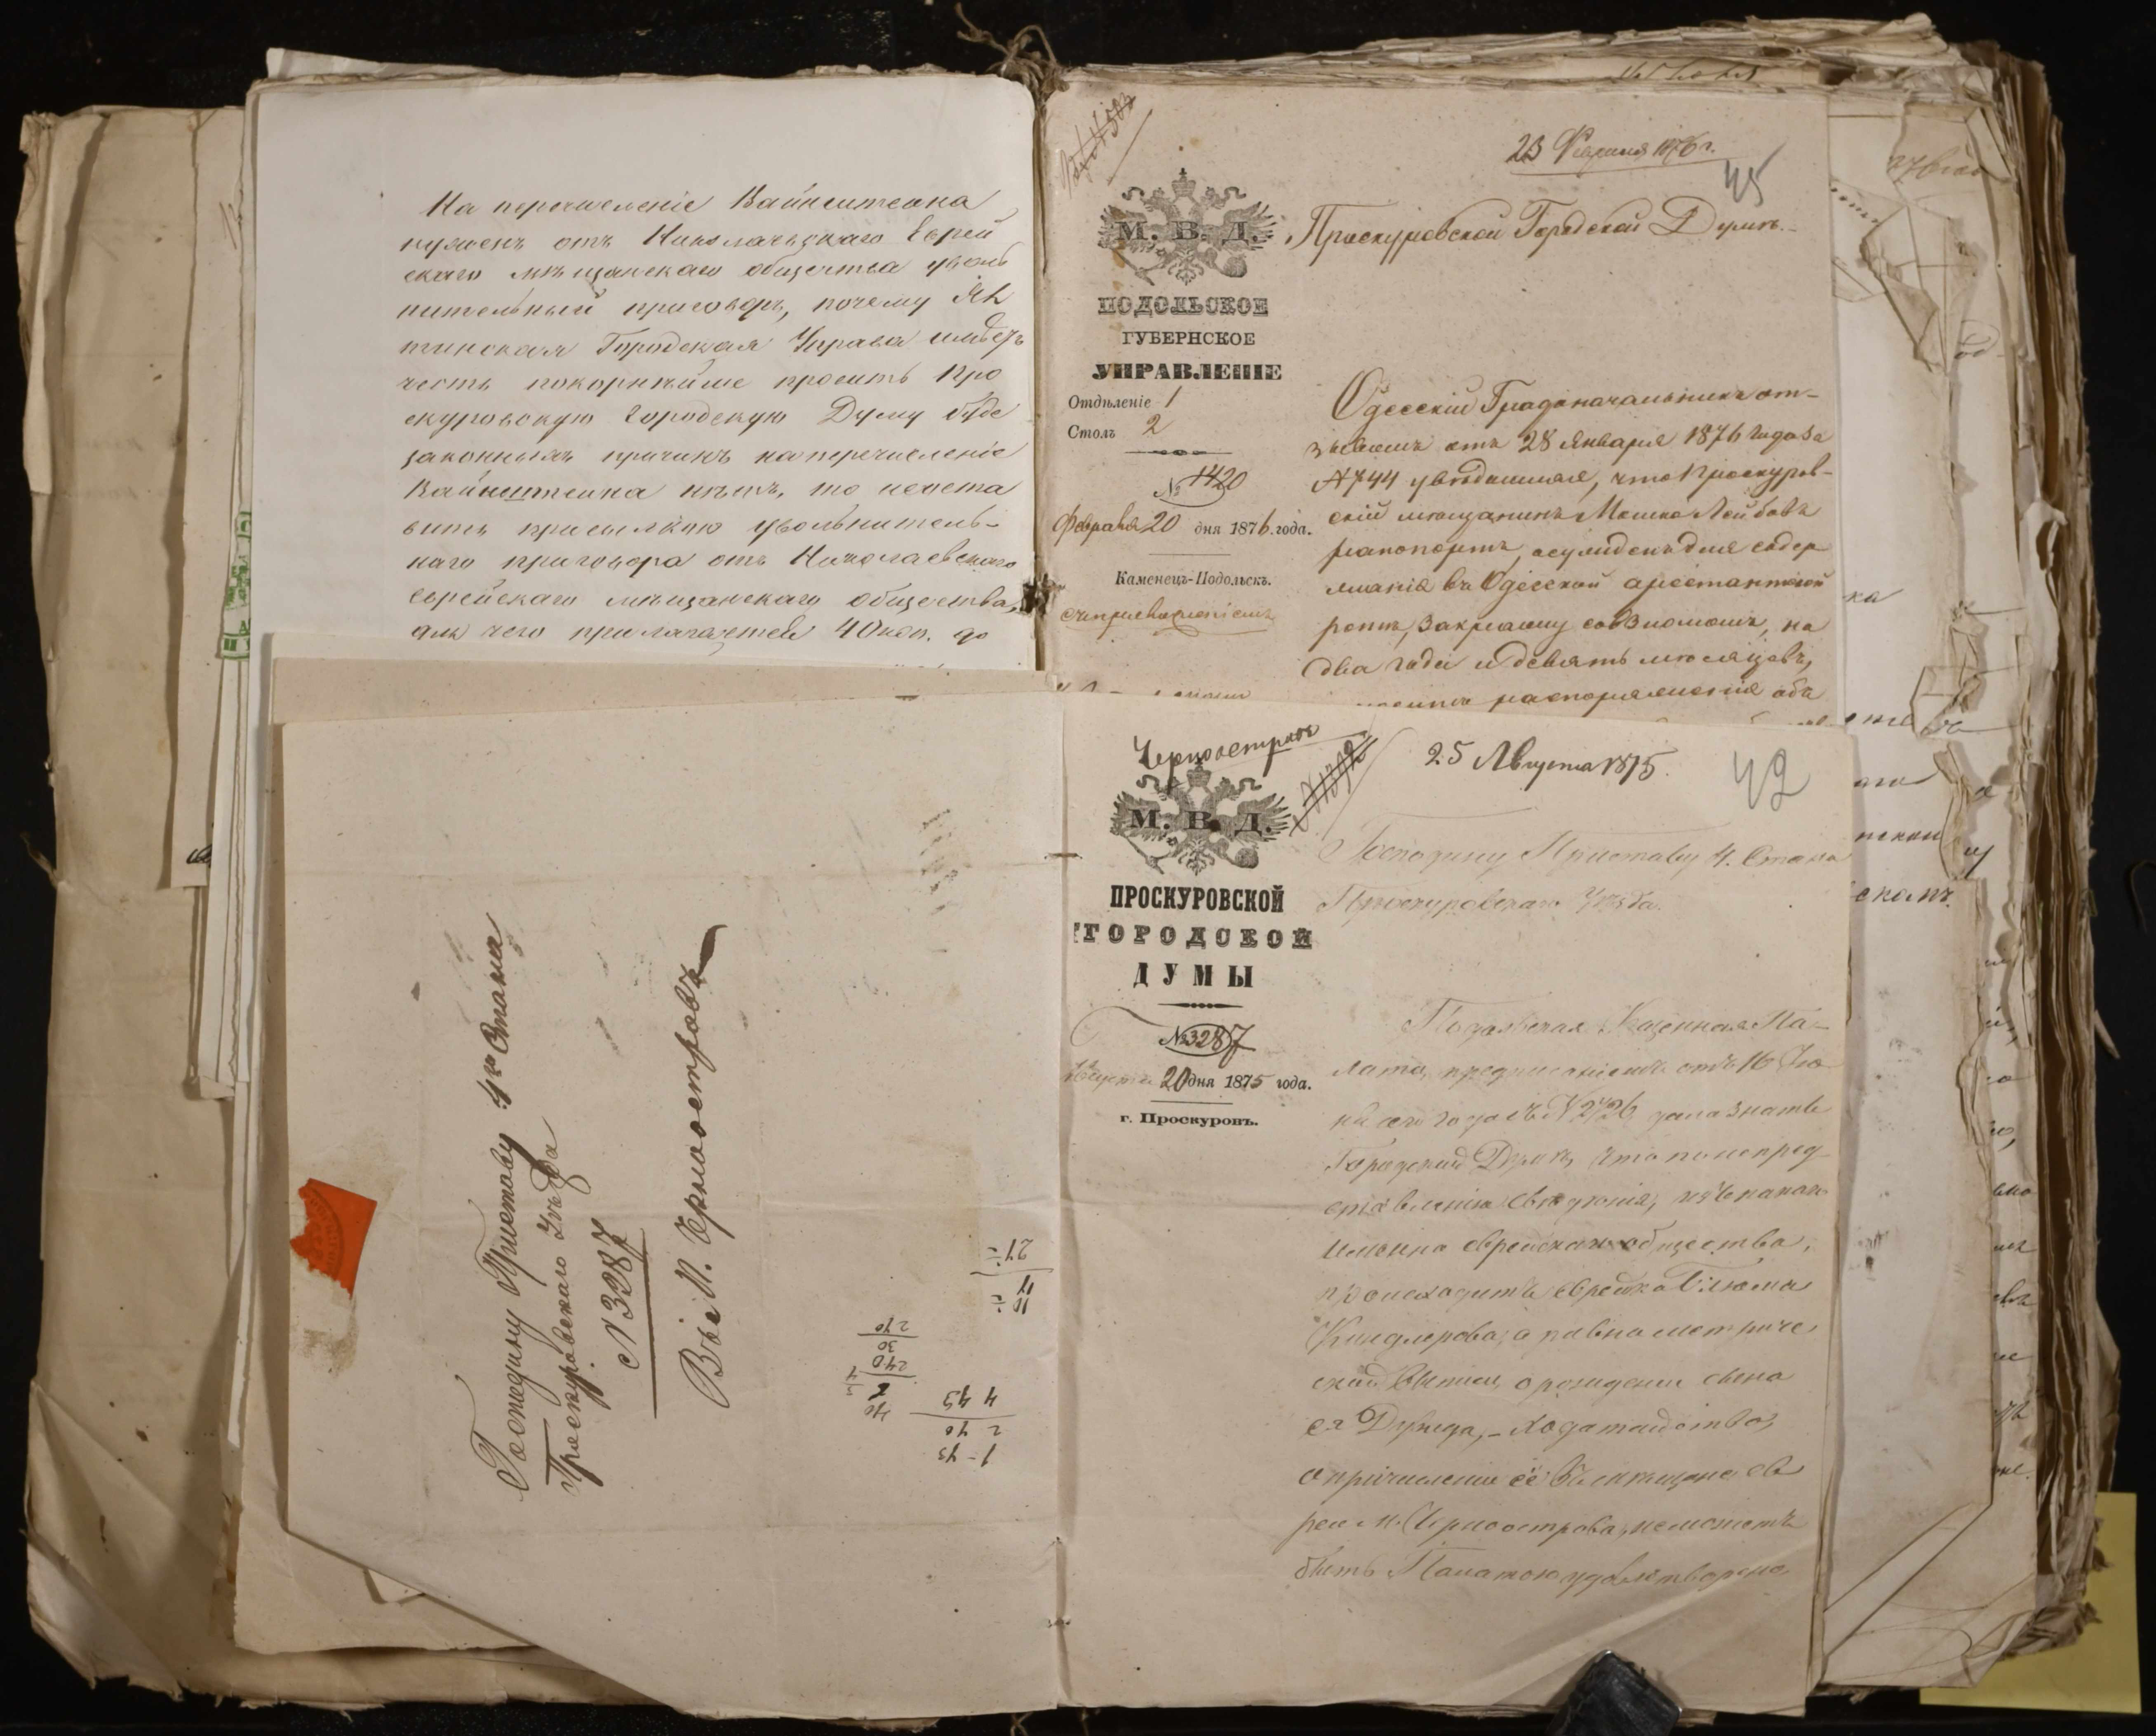 На перечисленіе Вайнштейна
нуженъ отъ Николаевскаго Еврей
скаго мѣщанскаго общества уволь
нительный приговоръ, почему Ял
тинская Городская Управа имѣетъ
честь покорнѣйше просить Про
скуровскую Городскую Думу буде
законныхъ причинъ на перечисленіе
Вайнштейна нѣтъ, то неоста
вить присылкою увольнитель-
наго приговора отъ Николаевскаго
Еврейскаго мѣщанскаго общества,
для чего прилагается 40 коп. до
23 Февраля 1876 г.
45
М. В. Д.
Проскуровской Городской Думѣ.
ПОДОЛЬСКОЕ
ГУБЕРНСКОЕ
УПРАВЛЕНІЕ
Отдѣленіе 1
Столъ 2
№ 1420
Февраля 20 дня 1876 года.
Каменецъ-Подольскъ.
Одесскій Градоначальникъ от-
зывомъ отъ 28 Января 1876 года за
№ 744 увѣдомилъ, что Проскуров-
скій мѣщанинъ Мошко Лейбовъ
Рапопортъ, осужденъ для содер
жанія въ Одесской арестантской
ротѣ, за кражу со взломомъ, на
два года и девять мѣсяцевъ,
распоряженія объ
Черноостровъ
25 Августа 1875.
42
М. В. Д.
Господину Приставу 4. Стана
Проскуровскаго Уѣзда.
ПРОСКУРОВСКОЙ
ГОРОДСКОЙ
ДУМЫ
№ 3287
Августа 20 дня 1875 года.
г. Проскуровъ.
Подольская Казенная Па-
лата, предписаніемъ отъ 16 Ію
ня сего года за № 2426 дала знать
Городской Думѣ, что по непред
ставленію свѣденія, изъ какого
именно еврейскаго общества,
происходитъ еврейка Блюма
Киндлерова, а равно метриче
ской выписи о рожденіи сына
ея Дувида, - ходатайство,
о причисленіи её въ мѣщане ев
реи м. Черноострова, неможетъ
быть Палатою удовлетворено
Господину Приставу 4го Стана
Проскуровскаго Уѣзда
№ 3287
Въ М. Черноостровъ
1 - 45
2 40
4 45
240
30
270
10
11
21